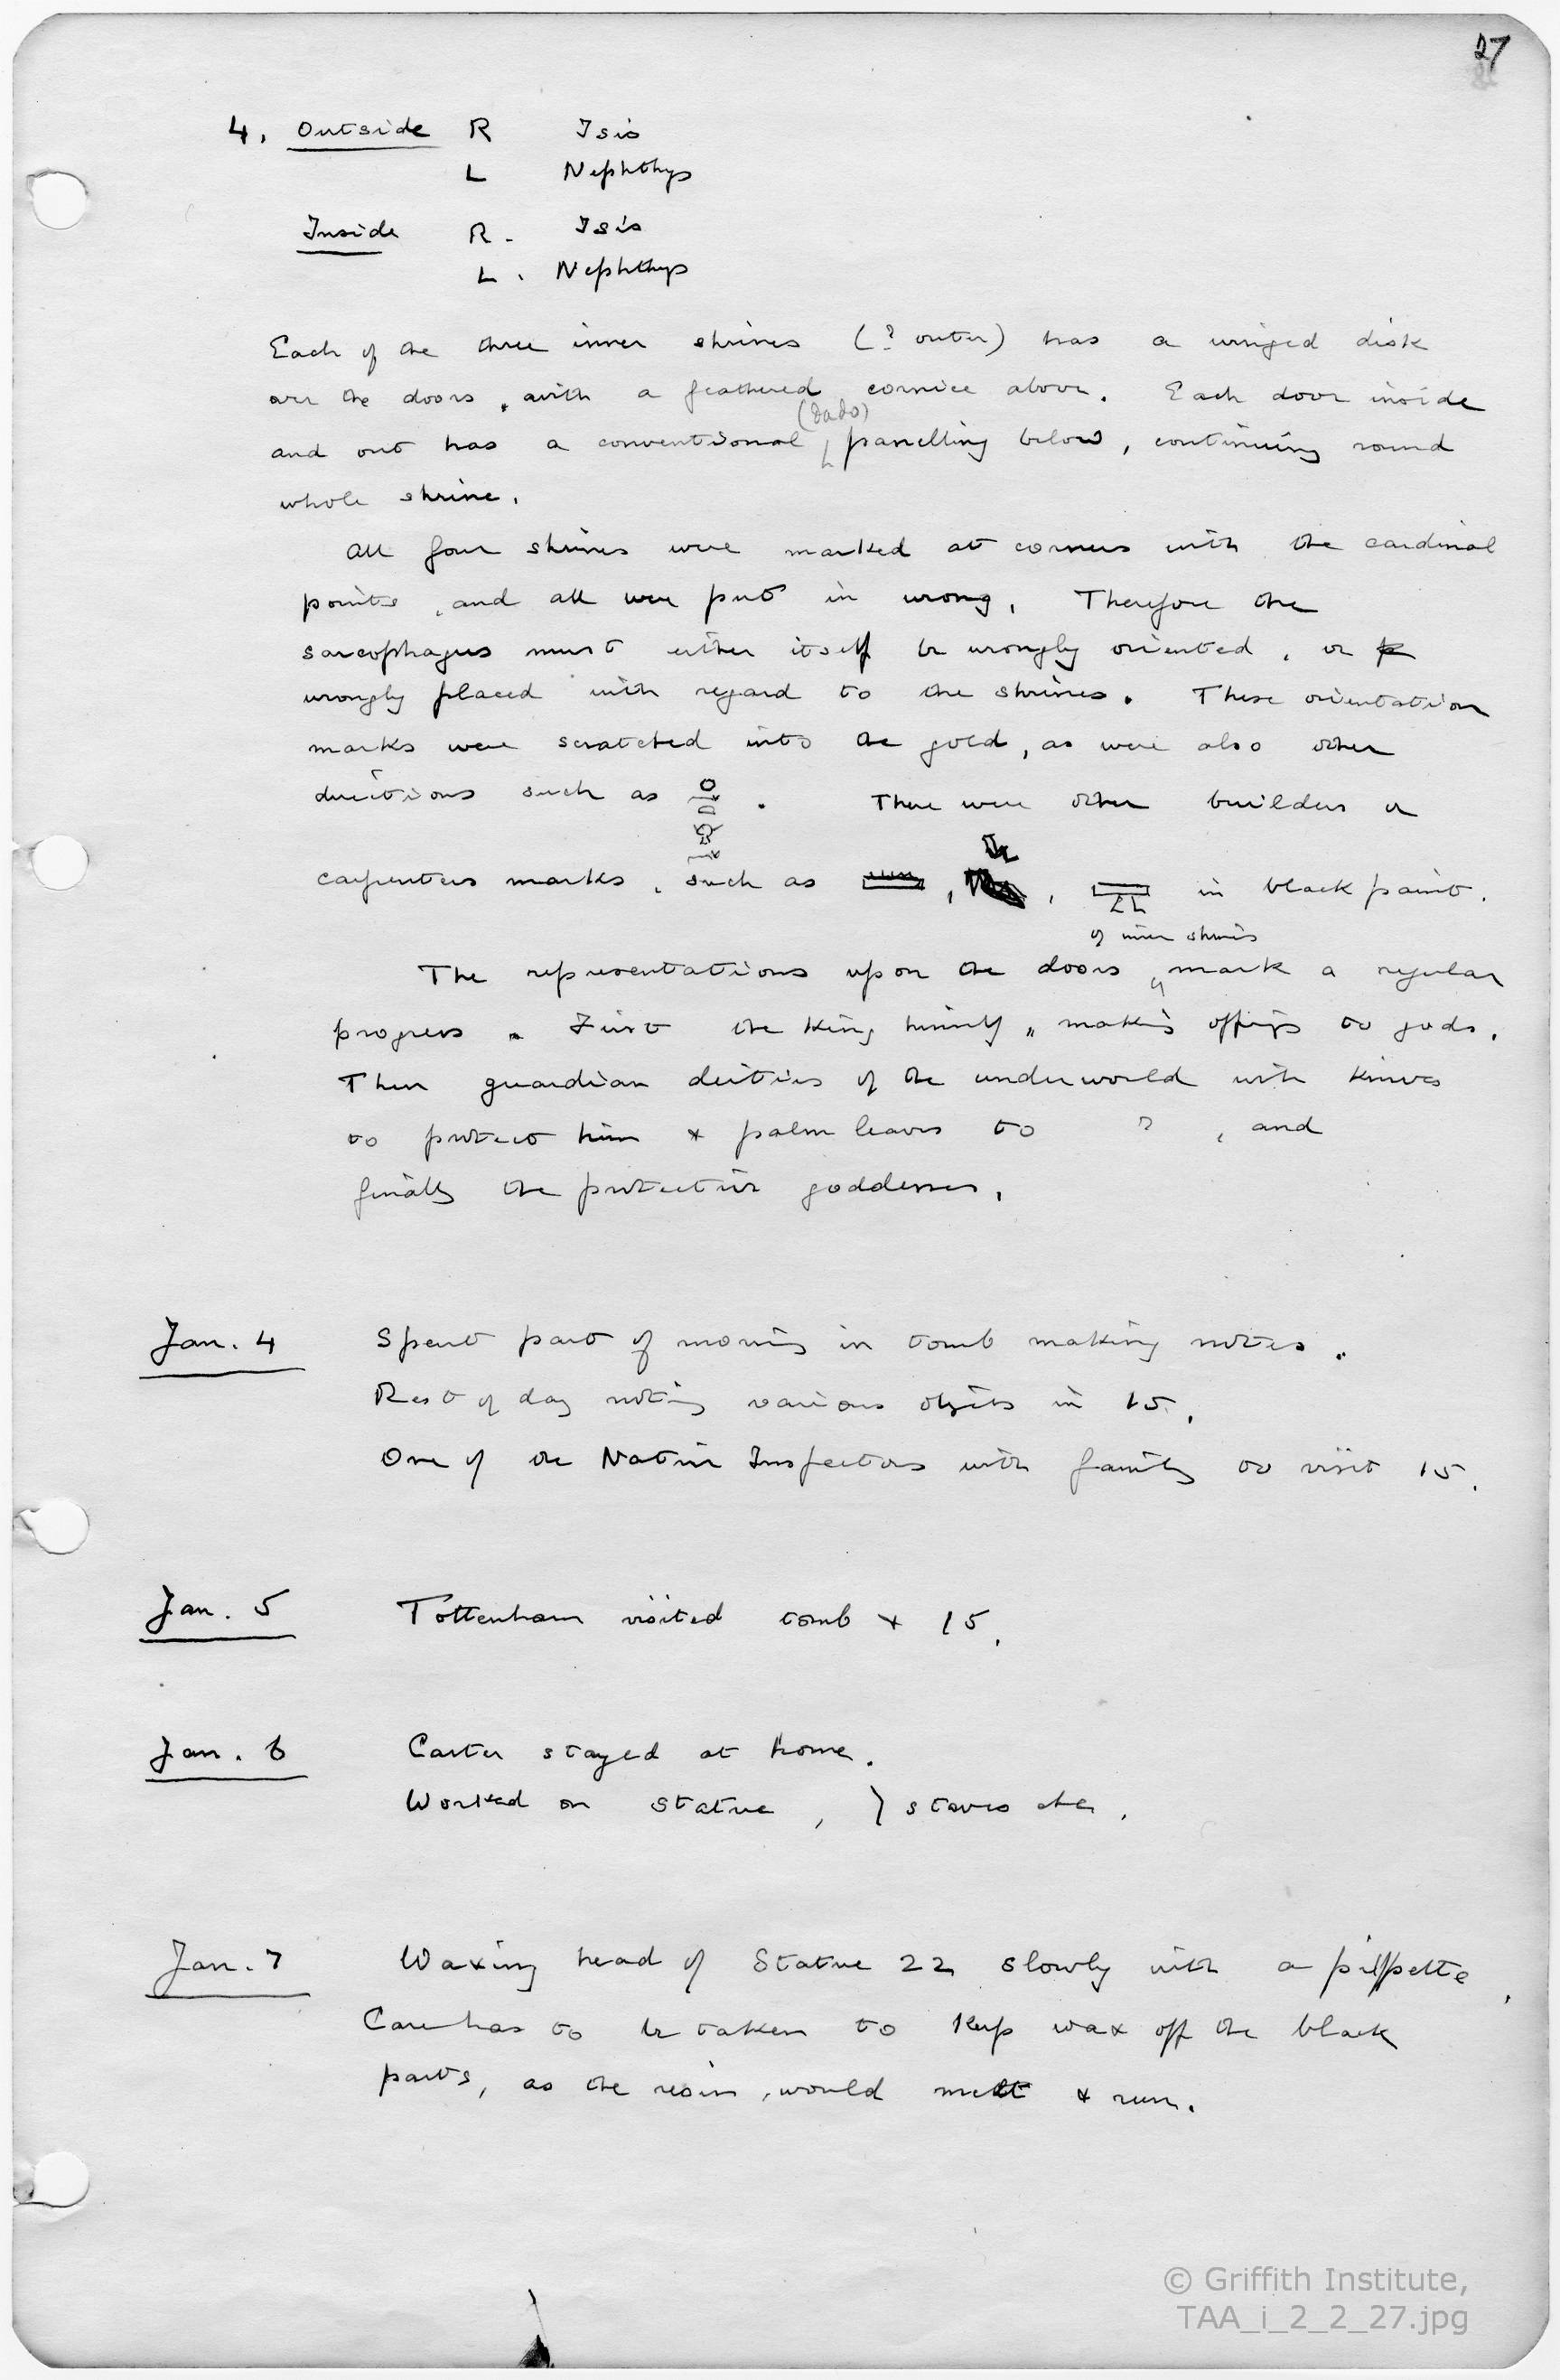 27
4. Outside R Isis
L Nephthys
Inside R. Isis
L. Nephthys
Each of the three inner shrines (? outer) has a winged disk
over the doors, with a feathered cornice above. Each door inside
(dado)
and out has a conventional panelling below, continuing round
whole shrine.
All four shrines were marked at corners with the cardinal
points, and all were put in wrong. Therefore the
sarcophagus must either itself be wrongly oriented, or
wrongly placed with regard to the shrines. These orientation
marks were scratched into the gold, as were also other
directions such as . There were other builders or
carpenters marks, such as , , in black paint.
of inner shrines
The representations upon the doors mark a regular
progress. First the king himself, making offerings to gods.
Then guardian deities of the underworld with knives
to protect him & palm leaves to ? , and
finally the protective goddesses.
Jan. 4 Spent part of morning in tomb making notes.
Rest of day noting various objects in 15.
One of the Native Inspectors with family to visit 15.
Jan. 5 Tottenham visited tomb & 15.
Jan. 6 Carter stayed at home.
Worked on statue, staves etc.
Jan. 7 Waxing head of Statue 22 slowly with a pippette.
Care has to be taken to keep wax off the black
parts, as the resin would melt & run.
© Griffith Institute,
TAA_i_2_2_27.jpg